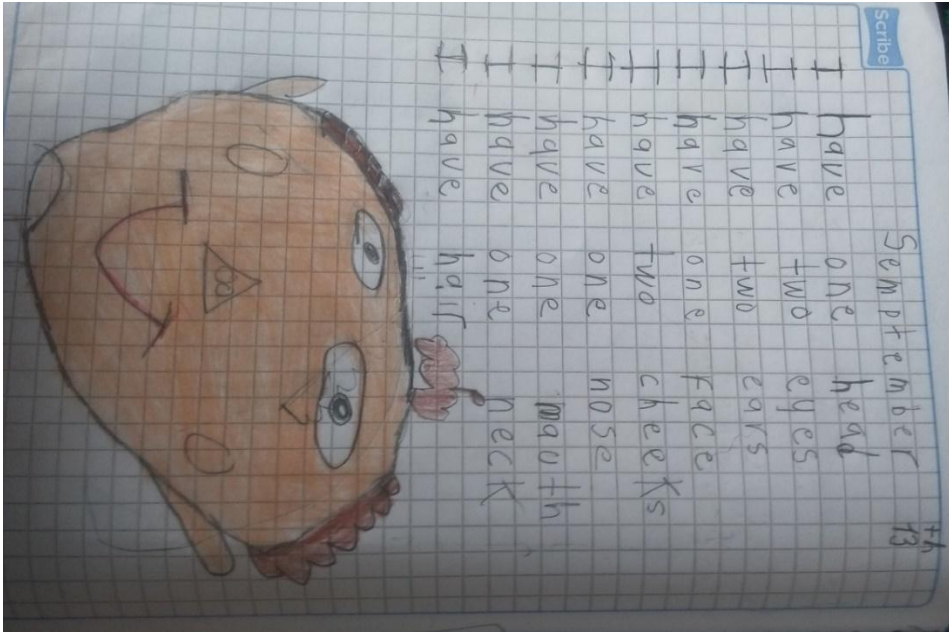 Scribe
Semptember 13th
I have one head
I have two eyes
I have two ears
I have one face
I have two cheeks
I have one nose
I have one mauth
I have one neck
I have hair